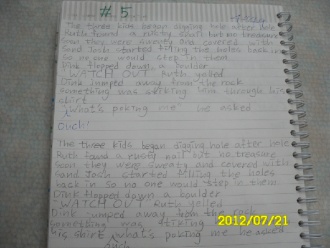 # 5
The three kids began digging hole after hole
Ruth found a rusty nail but no treasure
Soon they were sweaty and covered with
sand Josh started filling the holes back in
So no one would step in them
Dink flopped down a boulder
WATCH OUT Ruth yelled
Dink jumped away from the rock
Something was sticking him through his
shirt
What's poking me he asked
Ouch!
The three kids began digging hole after hole
Ruth found a rusty nail but no treasure
Soon they were sweaty and covered with
Sand Josh started filling the holes
back in so no one would step in them
Dink flopped down a boulder
WATCH OUT Ruth yelled
Dink jumped away from the rock
Something was sticking
his shirt what's poking me he asked
ouch
2012/07/21